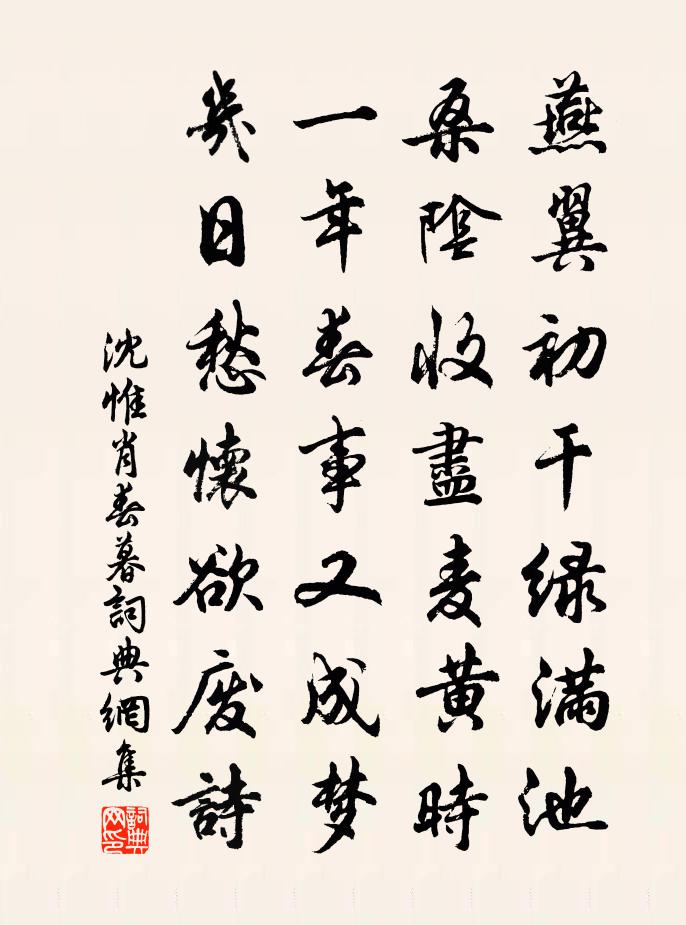 燕翼初干绿满池
桑陰收盡麦黄時
一年春事又成梦
幾日愁懷欲废詩
沈惟肖春暮詞典網集
詞典网印